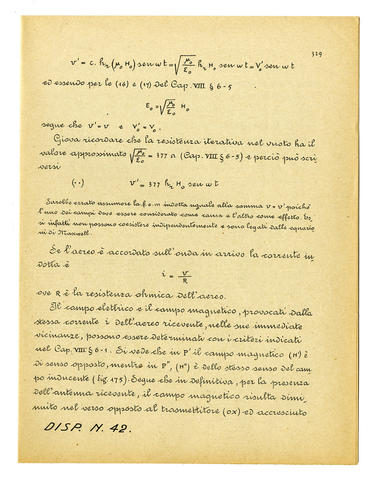 329
v' = c. hr (μ₀ H₀) sen ωt = √(μ₀/ε₀) hr H₀ sen ωt = V₀' sen ωt
ed essendo per le (16) e (17) del Cap. VIII § 6-5
E₀ = √(μ₀/ε₀) H₀
segue che v' = v e V₀' = V₀.
Giova ricordare che la resistenza iterativa nel vuoto ha il
valore approssimato √(μ₀/ε₀) = 377 Ω (Cap. VIII § 6-5) e perciò può scri
versi
(··) v' = 377 hr H₀ sen ωt
Sarebbe errato assumere la f.e.m indotta uguale alla somma v + v' poichè
l'uno dei campi deve essere considerato come causa e l'altro come effetto. Es
si infatti non possono coesistere indipendentemente e sono legati dalle equazio
ni di Maxwell.
Se l'aereo è accordato sull'onda in arrivo la corrente in
dotta è
i = v/R
ove R è la resistenza ohmica dell'aereo.
Il campo elettrico e il campo magnetico, provocati dalla
stessa corrente i dell'aereo ricevente, nelle sue immediate
vicinanze, possono essere determinati con i criteri indicati
nel Cap. VIII § 6-1. Si vede che in P' il campo magnetico (H') è
di senso opposto, mentre in P", (H") è dello stesso senso del cam
po inducente (fig. 175). Segue che in definitiva, per la presenza
dell'antenna ricevente, il campo magnetico risulta dimi
nuito nel verso opposto al trasmettitore (OX) ed accresciuto
DISP. N. 42.